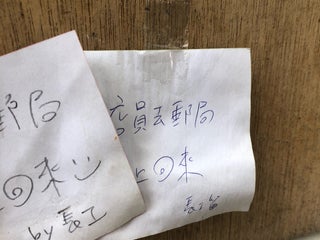 郵局
回來
by 長工
店員去郵局
上回來